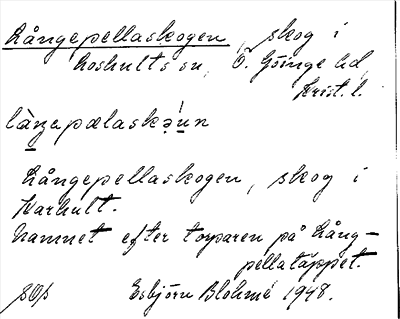 Långepellaskogen, skog i
Loshults sn, Ö. Göinge hd,
Krist. l.
Långepellaskogen, skog i
Harhult.
Namnet efter torparen på Lång-
pellatäppet.
Esbjörn Blohmé 1948.